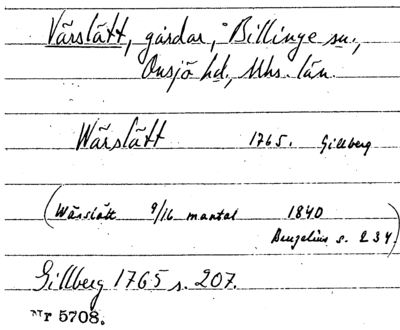 Värslätt, gårdar, Billinge sn.,
Onsjö hd., Mhs. län.
Wärslätt 1765. Gillberg
(Wärslätt 9/16 mantal 1840
Benzelius s. 234.)
Gillberg 1765 s. 207.
Nr 5708.